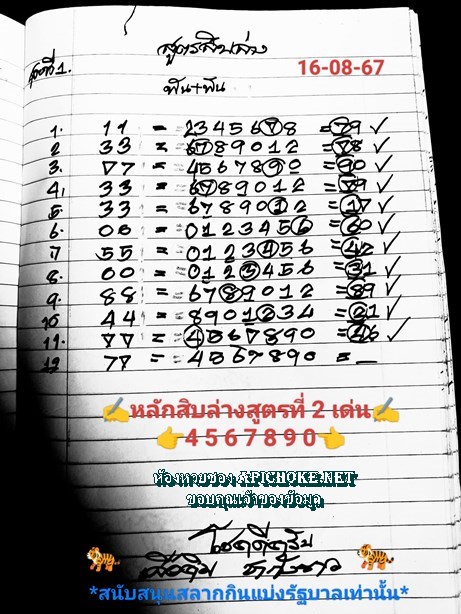 สูตรสิบล่าง
สูตรที่ 1.
16-08-67
พัน+พัน
1. 11 = 2345678 = 79 ✓
2 33 = 6789012 = 78 ✓
3. 77 = 4567890 = 90 ✓
4, 33 = 6789012 = 79 ✓
5 33 = 6789012 = 17 ✓
6. 00 = 0123456 = 60 ✓
7 55 = 0123456 = 42 ✓
8. 00 = 0123456 = 31 ✓
9. 88 = 6789012 = 89 ✓
10 44 = 8901234 = 21 ✓
11. 77 = 4567890 = 46 ✓
12 77 = 4567890 = _
✍หลักสิบล่างสูตรที่ 2 เด่น✍
👉4 5 6 7 8 9 0👈
ห้องหวยของ APICHOKE.NET
ขอบคุณเจ้าของข้อมูล
โชคดีครับ
*สนับสนุนสลากกินแบ่งรัฐบาลเท่านั้น*